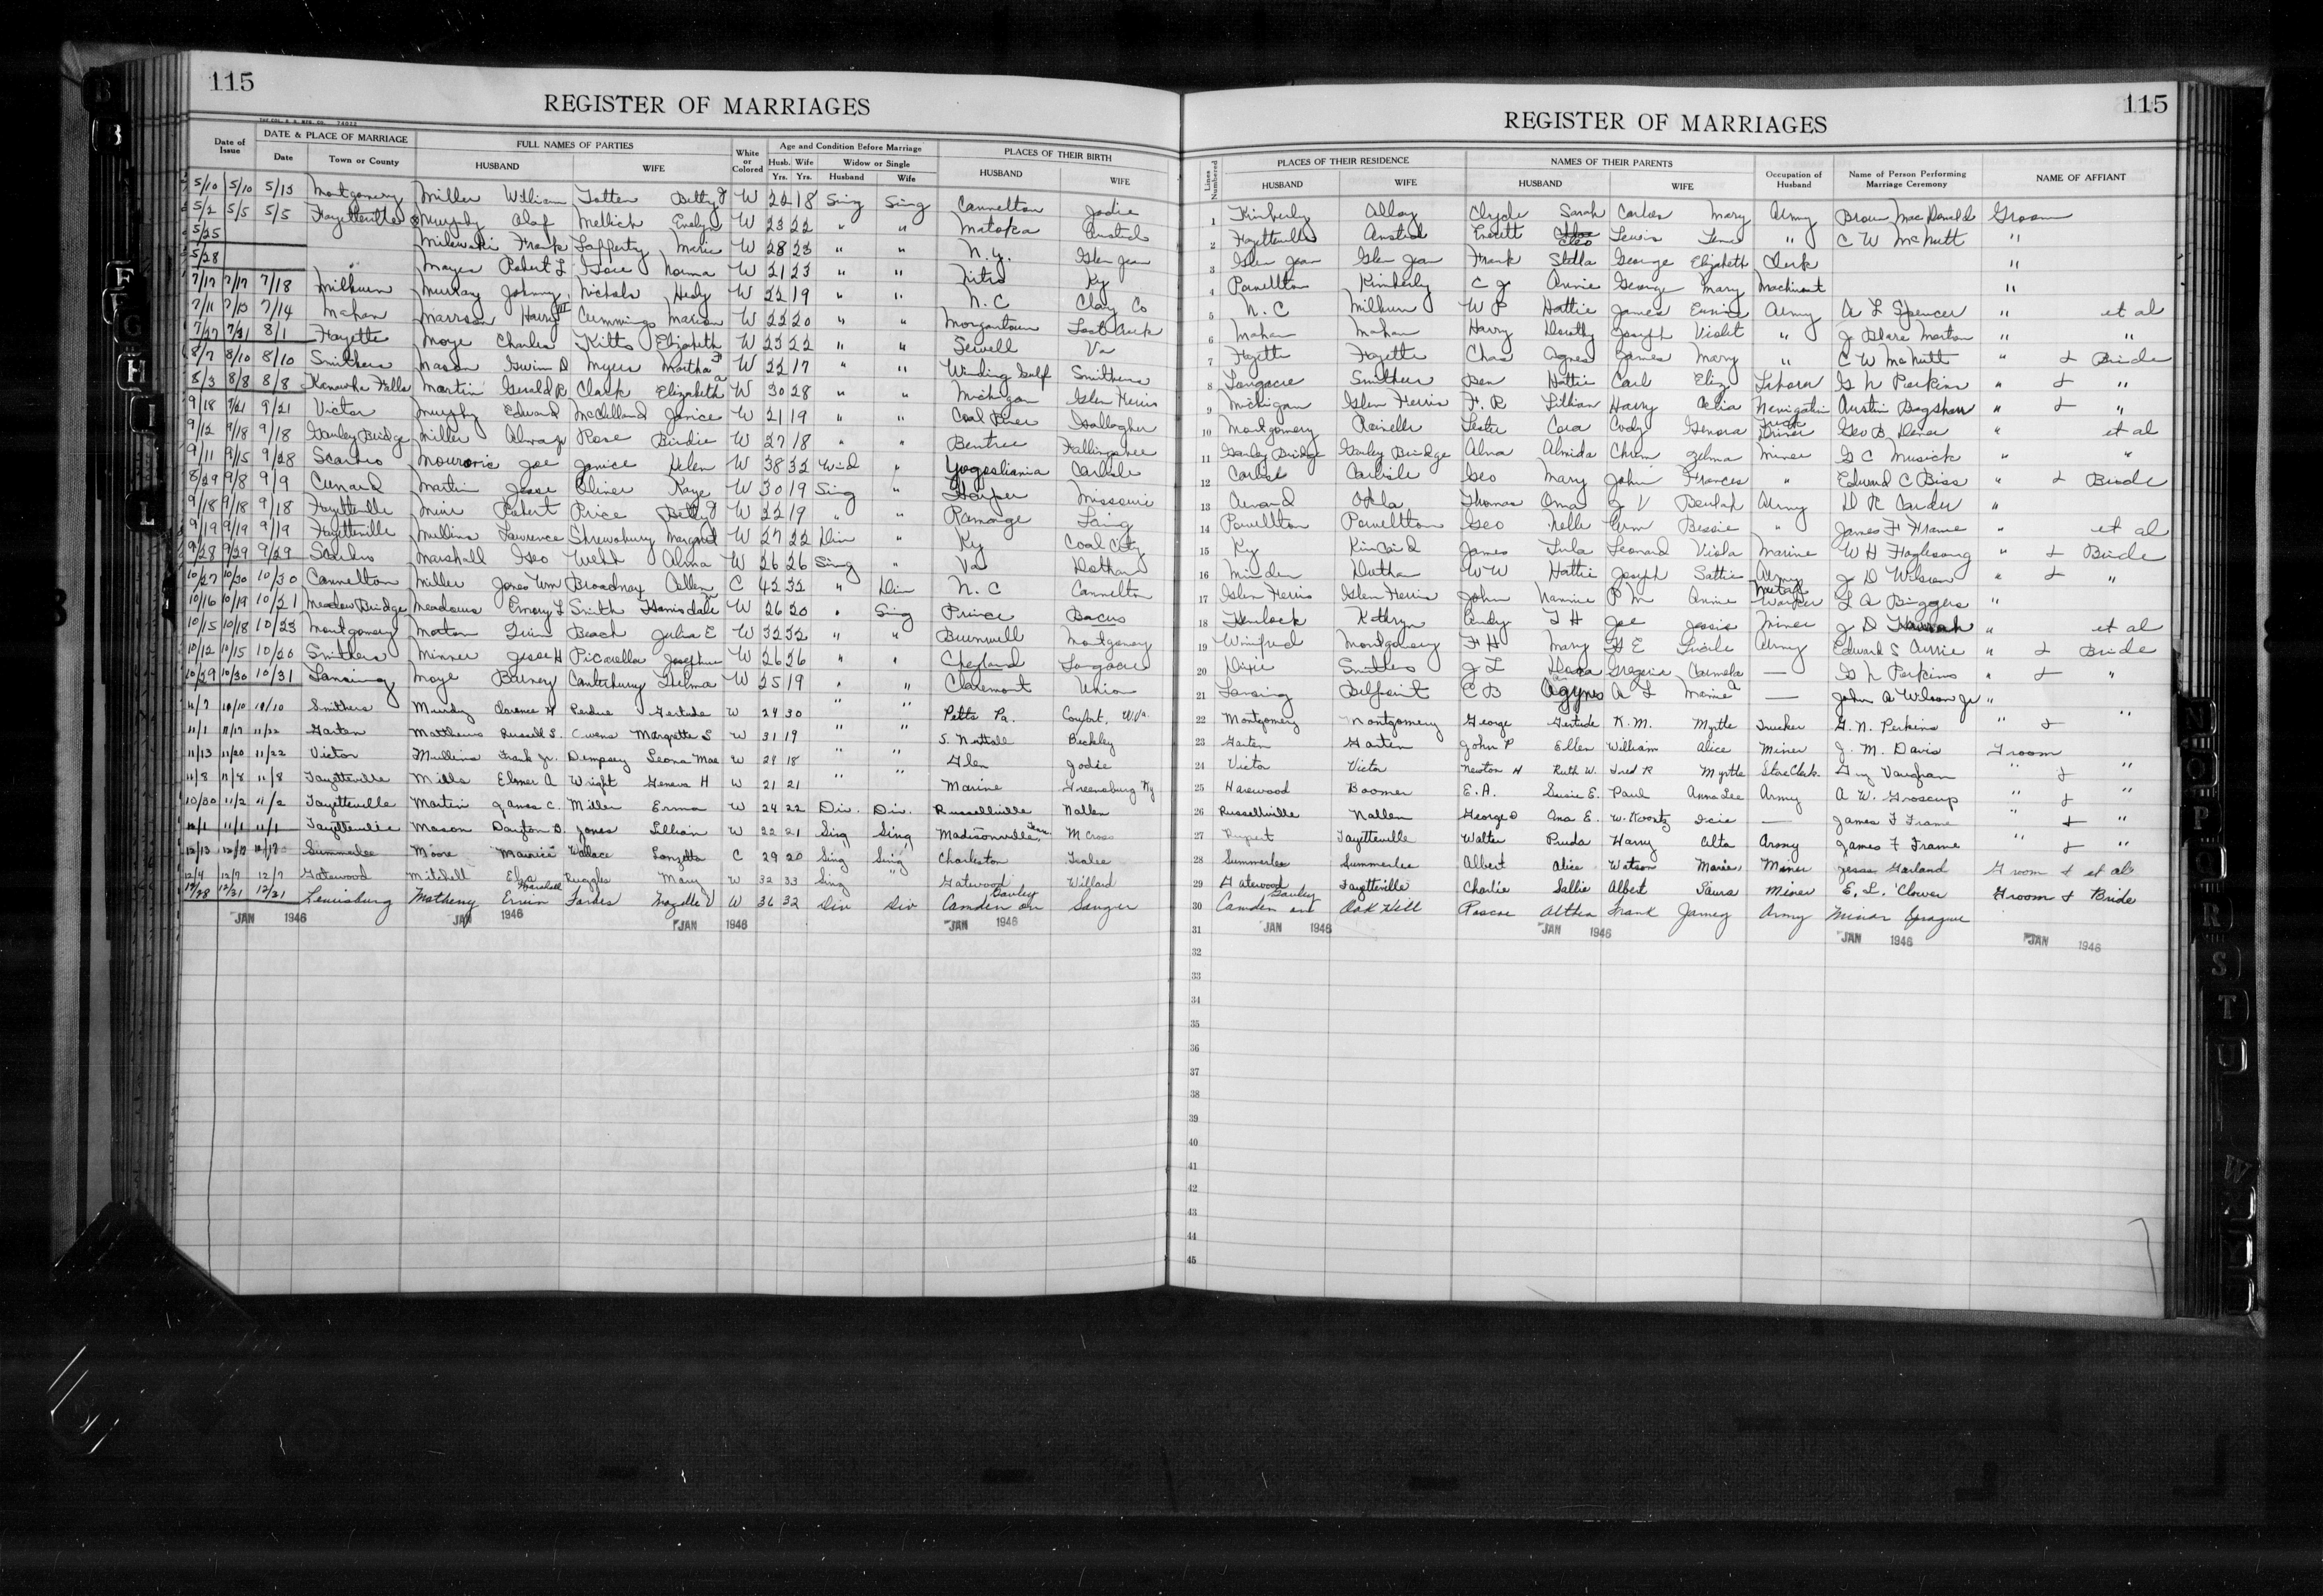 115
REGISTER OF MARRIAGES
Date of Issue | DATE & PLACE OF MARRIAGE | FULL NAMES OF PARTIES | White or Colored | Age and Condition Before Marriage | PLACES OF THEIR BIRTH
Date | Town or County | HUSBAND | WIFE | Husb. Yrs. | Wife Yrs. | Widow or Single | Husband | Wife | HUSBAND | WIFE
5/10 5/10 5/13 Montgomery Miller William Totten Betty J W 22 18 Sing Sing Cannelton Jodie
5/2 5/5 5/5 Fayetteville Murphy Olaf Mellich Evelyn W 23 22 " " Matoka Ansted
5/25 Milewski Frank Lafferty Marie W 28 23 " " N.Y. Glen Jean
5/28 Mayes Robert L Norma W 21 23 " " Nitro Ky
7/17 7/17 7/18 Milburn Murray Johnny Nichols Hedy W 22 19 " " N.C Clay Co
7/11 7/13 7/14 Mahan Marrson Harry III Cummings Marion W 22 20 " " Morgantown Lost Creek
7/27 7/31 8/1 Fayette Moye Charles Kitts Elizabeth W 23 22 " " Sewell Va
8/7 8/10 8/10 Smithers Mason Gwinn D Myers Martha F W 22 17 " " Winding Gulf Smithers
8/3 8/8 8/8 Kanawha Falls Martin Gerald R Clark Elizabeth A W 30 28 " " Michigan Glen Ferris
9/18 9/21 9/21 Victor Murphy Edward McClelland Janice W 21 19 " " Coal River Gallagher
9/12 9/18 9/18 Gauley Bridge Miller Rose Birdie W 27 18 " " Bentree Fallingsbee
9/11 9/15 9/28 Scarbro Mourovic Joe Janice Helen W 38 32 Wid " Yogoslavia Carlisle
8/29 9/8 9/9 Cunard Martin Jesse Oliver Kaye W 30 19 Sing " Harper Missouri
9/18 9/18 9/18 Fayetteville Muir Robert Price Betty J W 22 19 " " Ramage Laing
9/19 9/19 9/19 Fayetteville Mullins Lawrence Shrewsbury Margaret W 27 22 Div " Ky Coal City
9/28 9/29 9/29 Scarbro Marshall Geo Webb Alma W 26 26 Sing " Va Dothan
10/27 10/30 10/30 Cannelton Miller Jones Wm Broadnax Aillen C 42 32 " Div N.C Cannelton
10/16 10/19 10/21 Meadow Bridge Meadows Emory L Smith W 26 20 " Sing Prince Bacus
10/15 10/18 10/23 Montgomery Morton Beach Julia E W 32 32 " " Burnwell Montgomery
10/12 10/15 10/20 Smithers Minner Jesse H Picarella Josephine W 26 26 " " Longacre
10/29 10/30 10/31 Lansing Moye Barney Canterbury Thelma W 25 19 " " Claremont Union
11/7 10/10 10/10 Smithers Mundy Clarence H Perdue Gertude W 24 30 " " Petts Pa. Comfort, W.Va.
11/1 11/17 11/22 Garten Matthews Russell S. Owens Margrette S W 31 19 " " S. Nuttall Beckley
11/13 11/20 11/22 Victor Mullins Frank Jr. Dempsey Leona Mae W 28 18 " " Glen Jodie
11/8 11/8 11/8 Fayetteville Mills Elmer A Wright Geneva H W 21 21 " " Marine Greensburg Ky
10/30 11/2 11/2 Fayetteville Martin James C. Miller Erma W 24 22 Div. Div. Russellville Nallen
11/1 11/1 11/1 Fayetteville Mason Dayton D. Jones Lillian W 22 21 Sing Sing Madisonville, Tenn. McCross
12/13 12/17 12/17 Summerlee Moore Maurice Wallace Lonzetta C 29 20 Sing Sing Charleston Tralee
12/4 12/7 12/7 Gatewood Mitchell Elza Ruggles Mary W 32 33 Sing " Gatewood Willard
12/28 12/31 12/31 Lewisburg Matheny Ervin Marshall Forbes W 36 32 Div Div Camden on Gauley Sanger
JAN 1946 JAN 1946 JAN 1946 JAN 1946
115
REGISTER OF MARRIAGES
Lines Numbered | PLACES OF THEIR RESIDENCE | NAMES OF THEIR PARENTS | Occupation of Husband | Name of Person Performing Marriage Ceremony | NAME OF AFFIANT
HUSBAND | WIFE | HUSBAND | WIFE
1 Kimberly Alloy Clyde Sarah Carlos Mary Army Brown MacDonald Groom
2 Fayetteville Ansted Everett Cleo Lewis Lena " C W McNutt "
3 Glen Jean Glen Jean Frank Stella George Elizabeth Clerk "
4 Powellton Kimberly C J Annie George Mary Machinist "
5 N.C Milburn W P Hattie James Eunice Army A L Spencer " et al
6 Mahan Mahan Harry Dorothy Joseph Violet " J Blare Morton " "
7 Fayette Fayette Chas Agnes James Mary " C W McNutt " & Bride
8 Longacre Smithers Ben Hattie Carl Eliz Laborer G N Perkins " & "
9 Michigan Glen Ferris F. R Lillian Harry Celia Navigation Austin Bagshaw " & "
10 Montgomery Lester Cora Cody Genora Truck Driver Geo B Denor " et al
11 Gauley Bridge Gauley Bridge Alva Almida Zelma Miner G C Musick " "
12 Carlisle Carlisle Geo Mary John Frances " Edward C Biss " & Bride
13 Cunard Thomas Oma J V Beulah Army D R Cauder "
14 Powellton Powellton Geo Nelle Erm Bessie " James F Frame " et al
15 Ky Kincaid James Lula Leonard Viola Marine W H Foglesong " & Bride
16 Minden Dothan W W Hattie Joseph Sattie Army J D Wilson " & "
17 Glen Ferris Glen Ferris John Nannie P M Annie Metal Worker L A Biggers "
18 Hemlock Kathryn Andy T H Joe Jessie Miner J D " et al
19 Winifred Montgomery F H Mary G E Army Edward S Aurie " & Bride
20 Dixie Smithers J L Dora Grazia Carmela — G N Perkins " & "
21 Lansing Belpoint C B Agnes A L Mamie A — John A Wilson Jr " "
22 Montgomery Montgomery George Gertude K. M. Myrtle Trucker G. N. Perkins " & "
23 Garten Garten John P Ellen William Alice Miner J. M. Davis Groom
24 Victor Victor Newton H Ruth W. Fred R Myrtle Store Clerk Guy Vaughan " & "
25 Harewood Boomer E. A. Susie E. Paul Anna Lee Army A W. Groscup " & "
26 Russellville Nallen George D Ona E. W. Koontz Icie — James F Frame " & "
27 Rupert Fayetteville Walter Pruda Harry Celta Army James F Frame " & "
28 Summerlee Summerlee Albert Alice Watson Marie Miner Jesse Garland Groom & et al
29 Gatewood Fayetteville Charlie Sallie Albert Laura Miner E. L. Clower Groom & Bride
30 Camden on Gauley Oak Hill Roscoe Althea Frank Army Minor Sprague
31 JAN 1946 JAN 1946 JAN 1946 JAN 1946
32
33
34
35
36
37
38
39
40
41
42
43
44
45
B
F
G
H
I
L
N
O
P
Q
R
S
T
U
W
Y